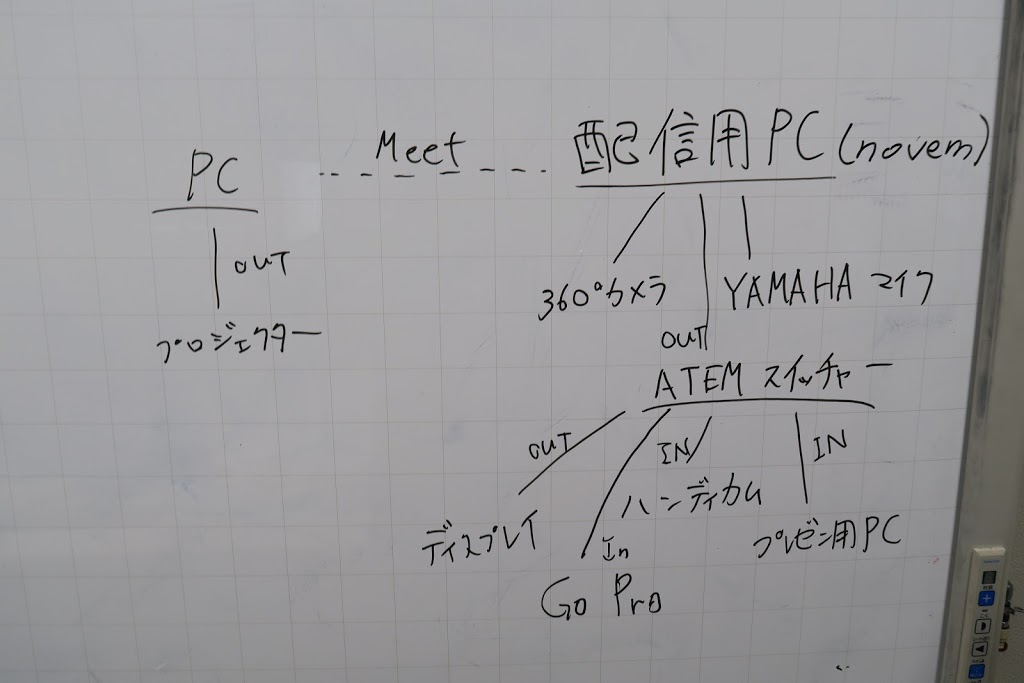 PC
Meet
配信用PC (novem)
OUT
プロジェクター
360°カメラ
YAMAHA マイク
OUT
ATEM スイッチャー
OUT
IN
IN
ディスプレイ
ハンディカム
プレゼン用PC
In
Go Pro